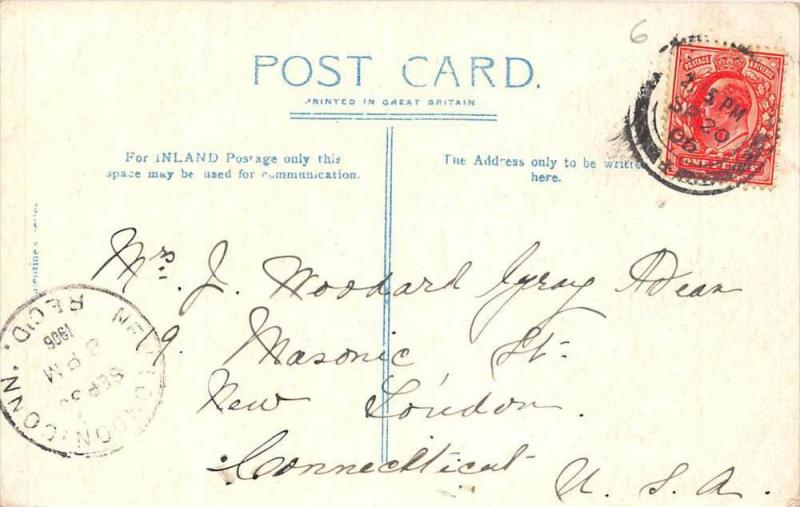 6
POST CARD.
PRINTED IN GREAT BRITAIN
For INLAND Postage only this
space may be used for communication.
The Address only to be written
here.
POSTAGE REVENUE
5 PM
20
Mrs. J. Woodard Gray Adean
9. Masonic St.
New London.
Connecticut
U. S. A.
NEW LONDON CONN.
REC'D.
1906
8 PM
SEP 30